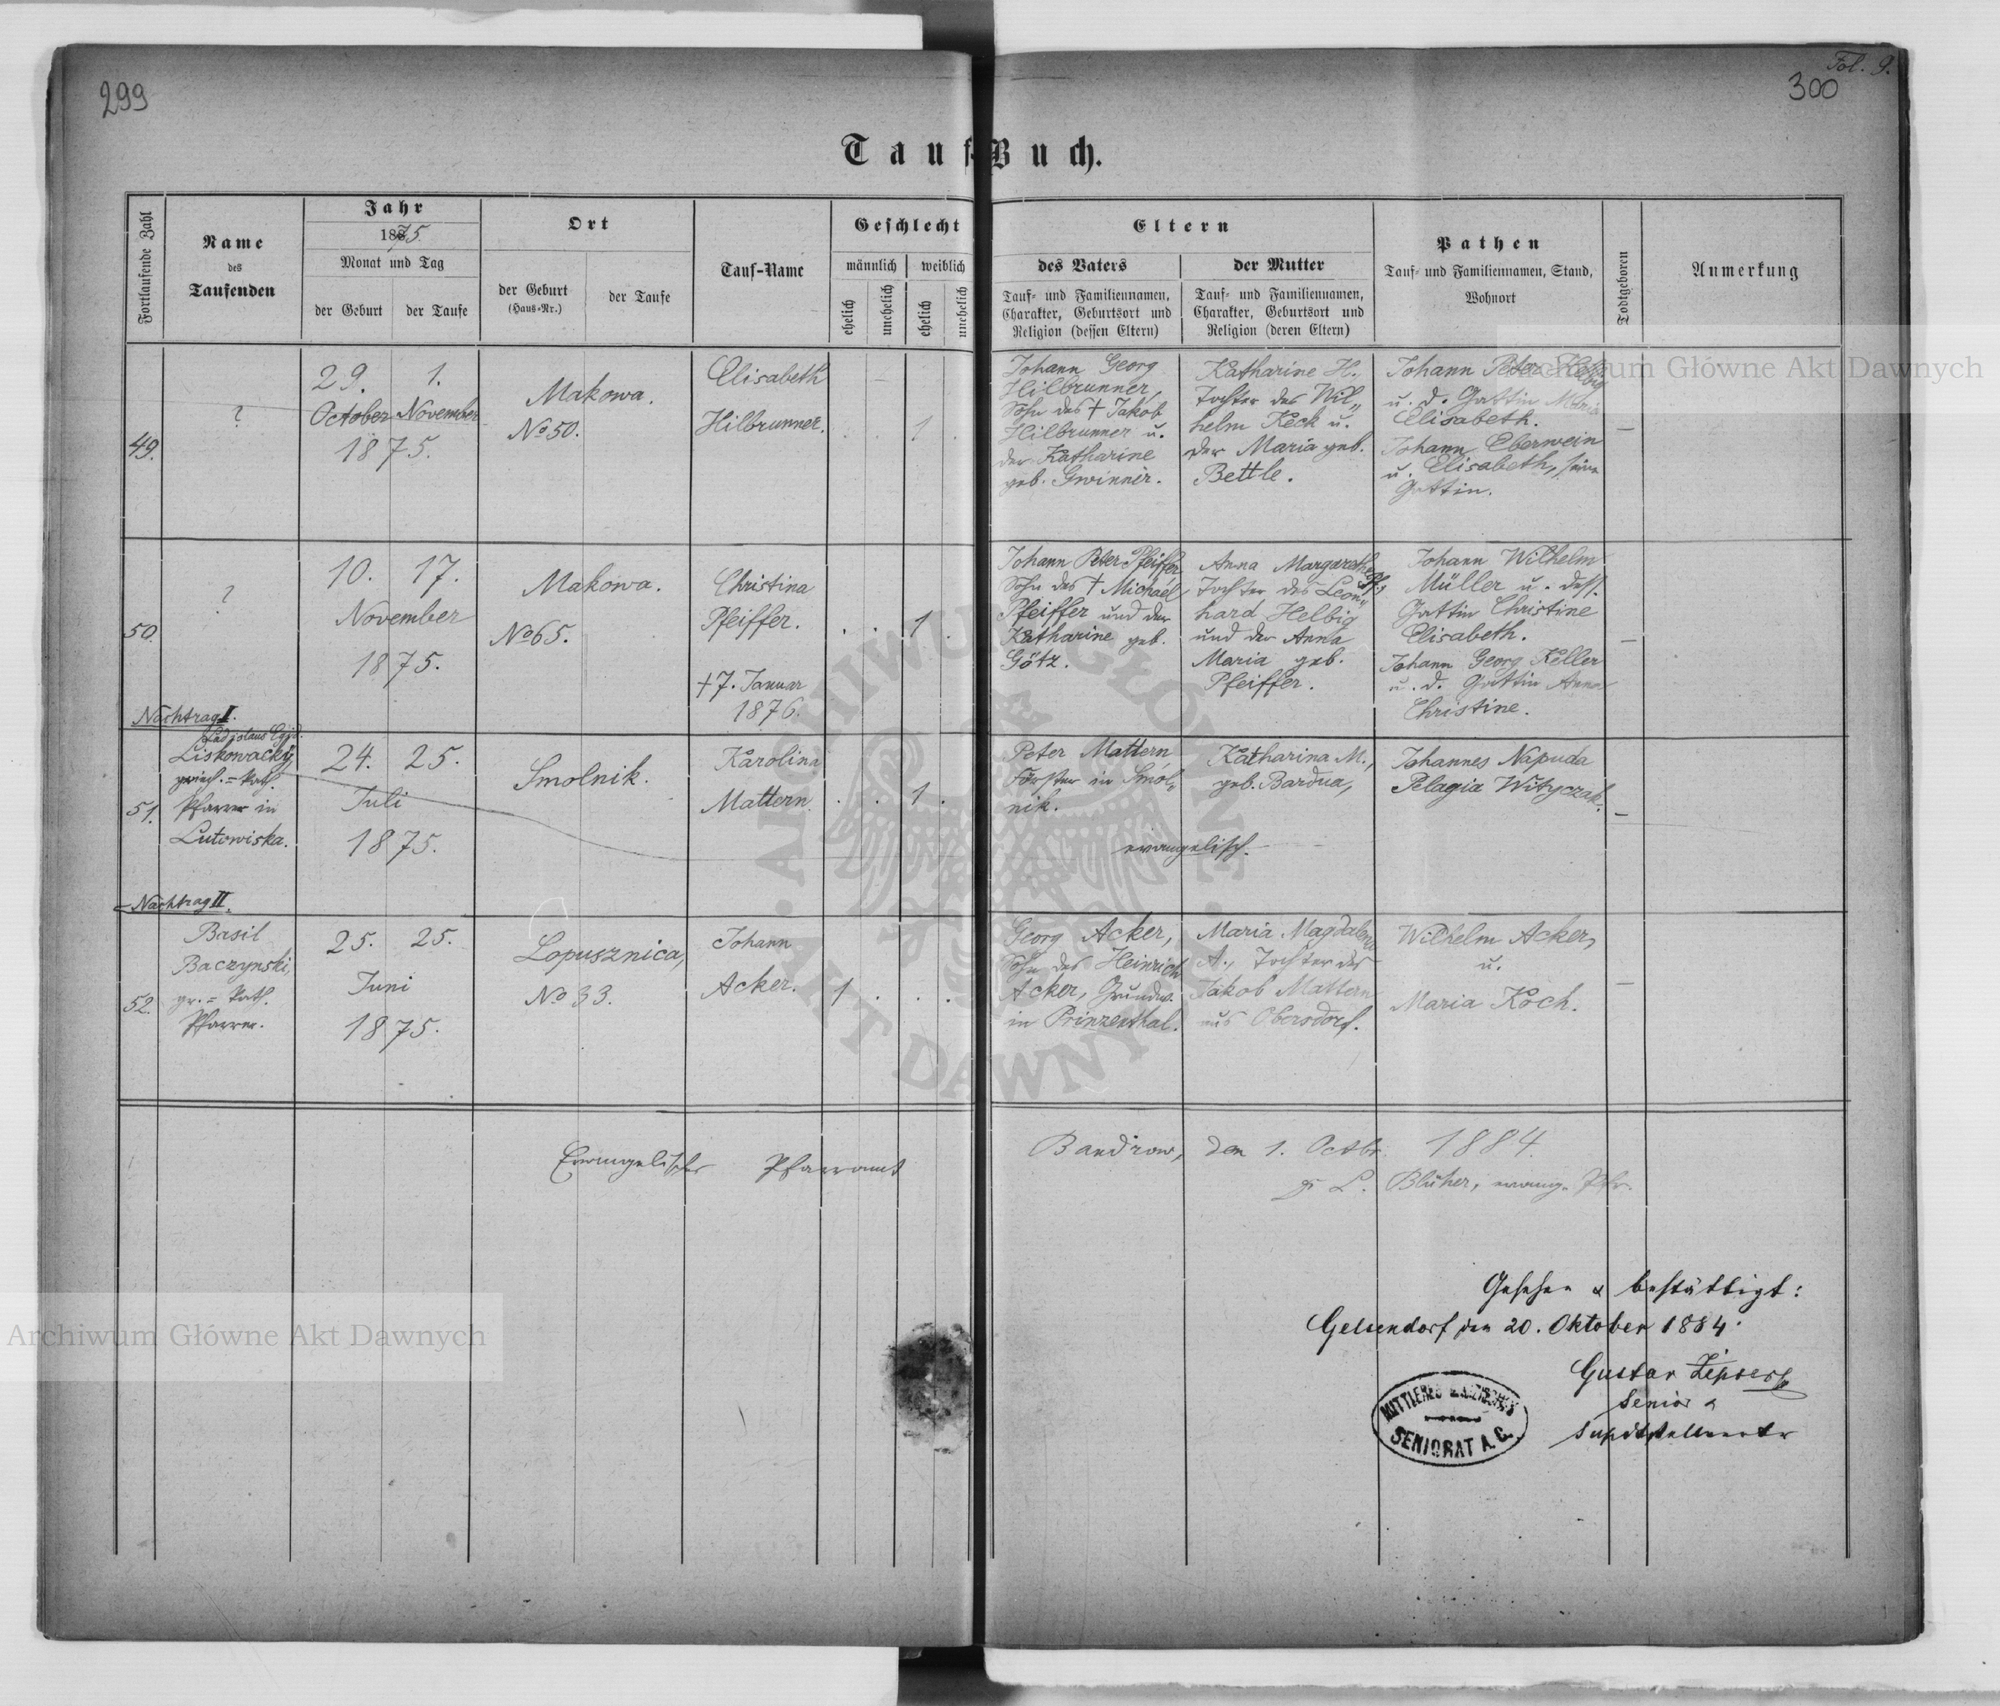 299
Fol. 9.
300
Tauf-Buch.
Fortlaufende Zahl
Name
des
Taufenden
Jahr
1875.
Monat und Tag
der Geburt
der Taufe
Ort
der Geburt
(Haus-Nr.)
der Taufe
Tauf-Name
Geschlecht
männlich
weiblich
ehelich
unehelich
ehelich
unehelich
Eltern
des Vaters
Tauf- und Familiennamen,
Charakter, Geburtsort und
Religion (dessen Eltern)
der Mutter
Tauf- und Familiennamen,
Charakter, Geburtsort und
Religion (deren Eltern)
Pathen
Tauf- und Familiennamen, Stand,
Wohnort
Todtgeboren
Anmerkung
49.
?
29. 1.
October November
1875.
Makowa.
No 50.
Elisabeth
Hilbrunner.
1
Johann Georg
Hilbrunner,
Sohn des † Jakob
Hilbrunner u.
der Katharine
geb. Gwinner.
Katharine H.
Tochter des Wil„
helm Keck u.
der Maria geb.
Bettle.
Johann Peter Helbig
u. d. Gattin Maria
Elisabeth.
Johann Eberwein
u. Elisabeth, seine
Gattin.
–
50.
?
10. 17.
November
1875.
Makowa.
No 65.
Christina
Pfeiffer.
† 7. Januar
1876.
1
Johann Peter Pfeiffer
Sohn des † Michael
Pfeiffer und der
Katharine geb.
Götz.
Anna Margarethe Pf.,
Tochter des Leon„
hard Helbig
und der Anna
Maria geb.
Pfeiffer.
Johann Wilhelm
Müller u. dess.
Gattin Christine
Elisabeth.
Johann Georg Keller
u. d. Gattin Anna
Christine.
–
Nachtrag I.
51.
Ladislaus
Liskowacky,
griech.=kath.
Pfarrer in
Lutowiska.
24. 25.
Juli
1875.
Smolnik.
Karolina
Mattern.
1
Peter Mattern
Förster in Smol„
nik.
Katharina M.,
geb. Bardua,
evangelisch.
Johannes Napuda
Pelagia Wityczak.
–
Nachtrag II.
52.
Basil
Baczynski,
gr.=kath.
Pfarrer.
25. 25.
Juni
1875.
Lopusznica,
No 33.
Johann
Acker.
1
Georg Acker,
Sohn des Heinrich
Acker, Grundw.
in Prinzenthal.
Maria Magdalena
A., Tochter des
Jakob Mattern
aus Obersdorf.
Wilhelm Acker,
u.
Maria Koch.
–
Evangelisches Pfarramt Bandrow, den 1. Octbr. 1884.
L. Blüher, evang. Pfr.
Gesehen & bestättigt:
Gelsendorf den 20. Oktober 1884.
Gustav Zipser
Senior &
MITTLERES GALIZISCHES
SENIORAT A. C.
Archiwum Główne Akt Dawnych
Archiwum Główne Akt Dawnych
ARCHIWUM GŁÓWNE
AKT DAWNYCH